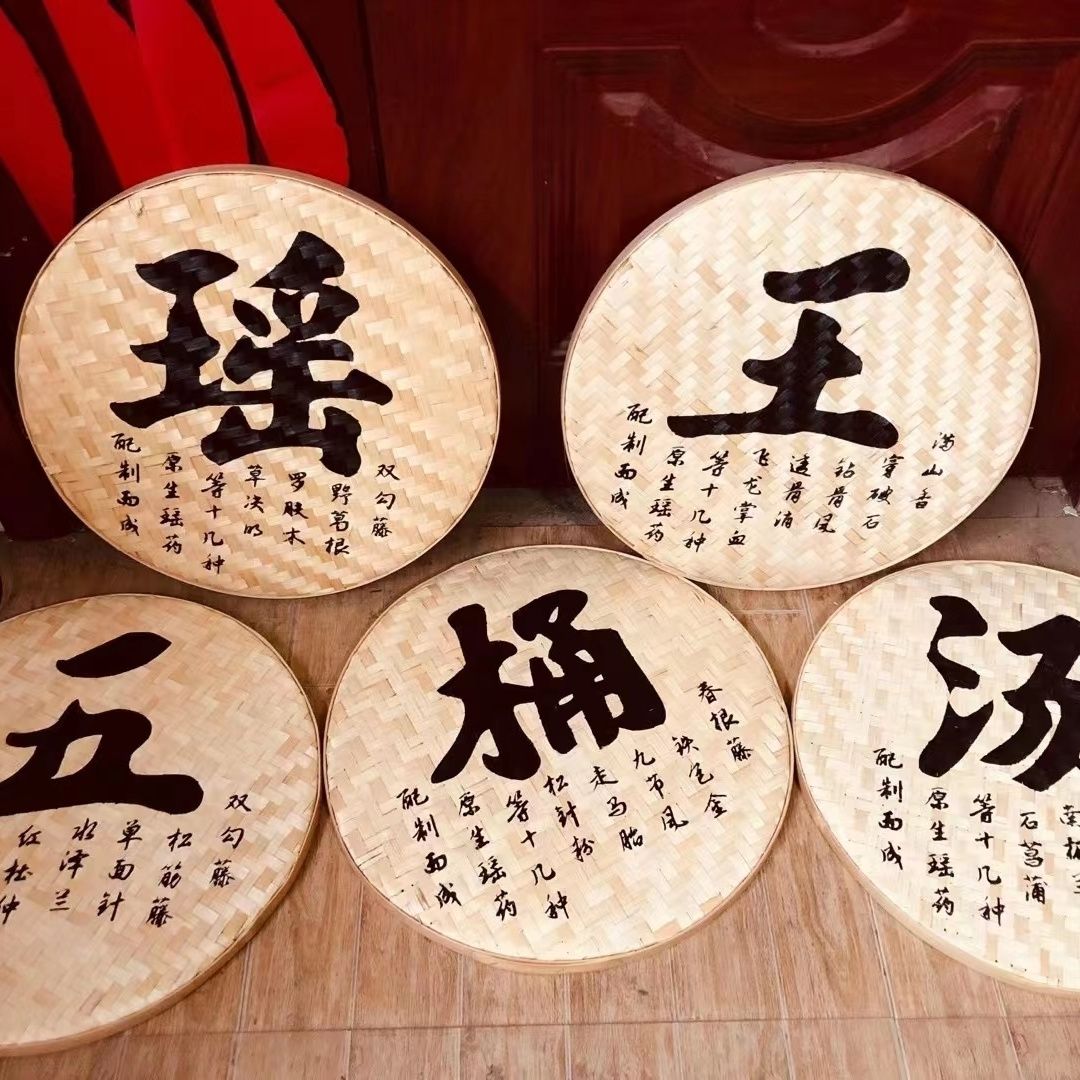 瑶
双勾藤
野葛根
罗肤木
草决明
等十几种
原生瑶药
配制而成
王
满山香
穿破石
钻骨风
透骨消
飞龙掌血
等十几种
原生瑶药
配制而成
五
双勾藤
松筋藤
单面针
水泽兰
红杜仲
桶
春根藤
铁包金
九节风
走马胎
松针粉
等十几种
原生瑶药
配制而成
汤
石菖蒲
等十几种
原生瑶药
配制而成